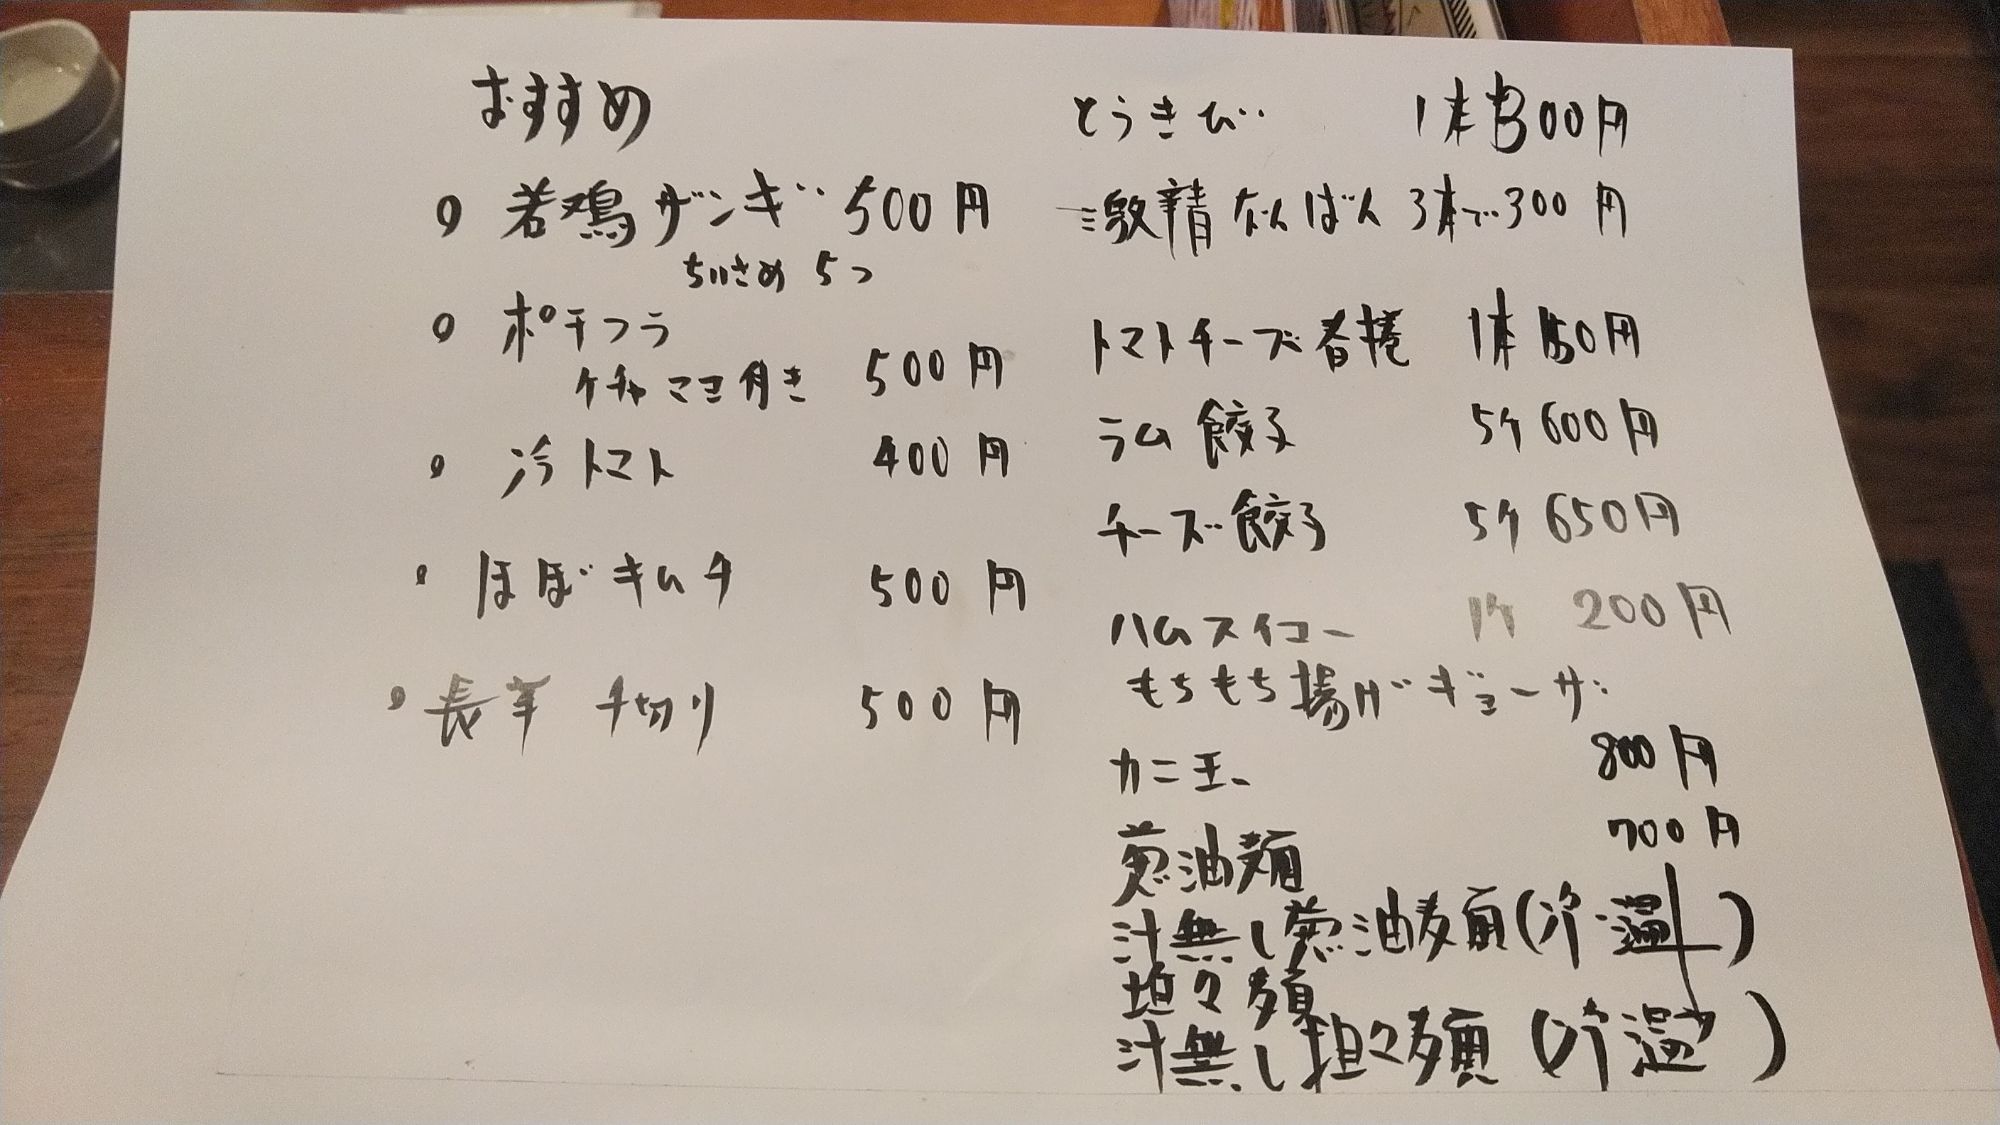 おすすめ
若鶏ザンギ 500円
ちいさめ 5つ
ポテフラ
ケチャマヨ付き 500円
冷トマト 400円
ほぼキムチ 500円
長芋 千切り 500円
とうきび 1本300円
激辛青なんばん 3本で300円
トマトチーズ春捲 1本150円
ラム餃子 5ケ600円
チーズ餃子 5ケ650円
ハムスイコー 1ケ 200円
もちもち揚げギョーザ
カニ玉 800円
700円
葱油麺
汁無し葱油麺(冷 温)
坦々麺
汁無し担々麺(冷 温)